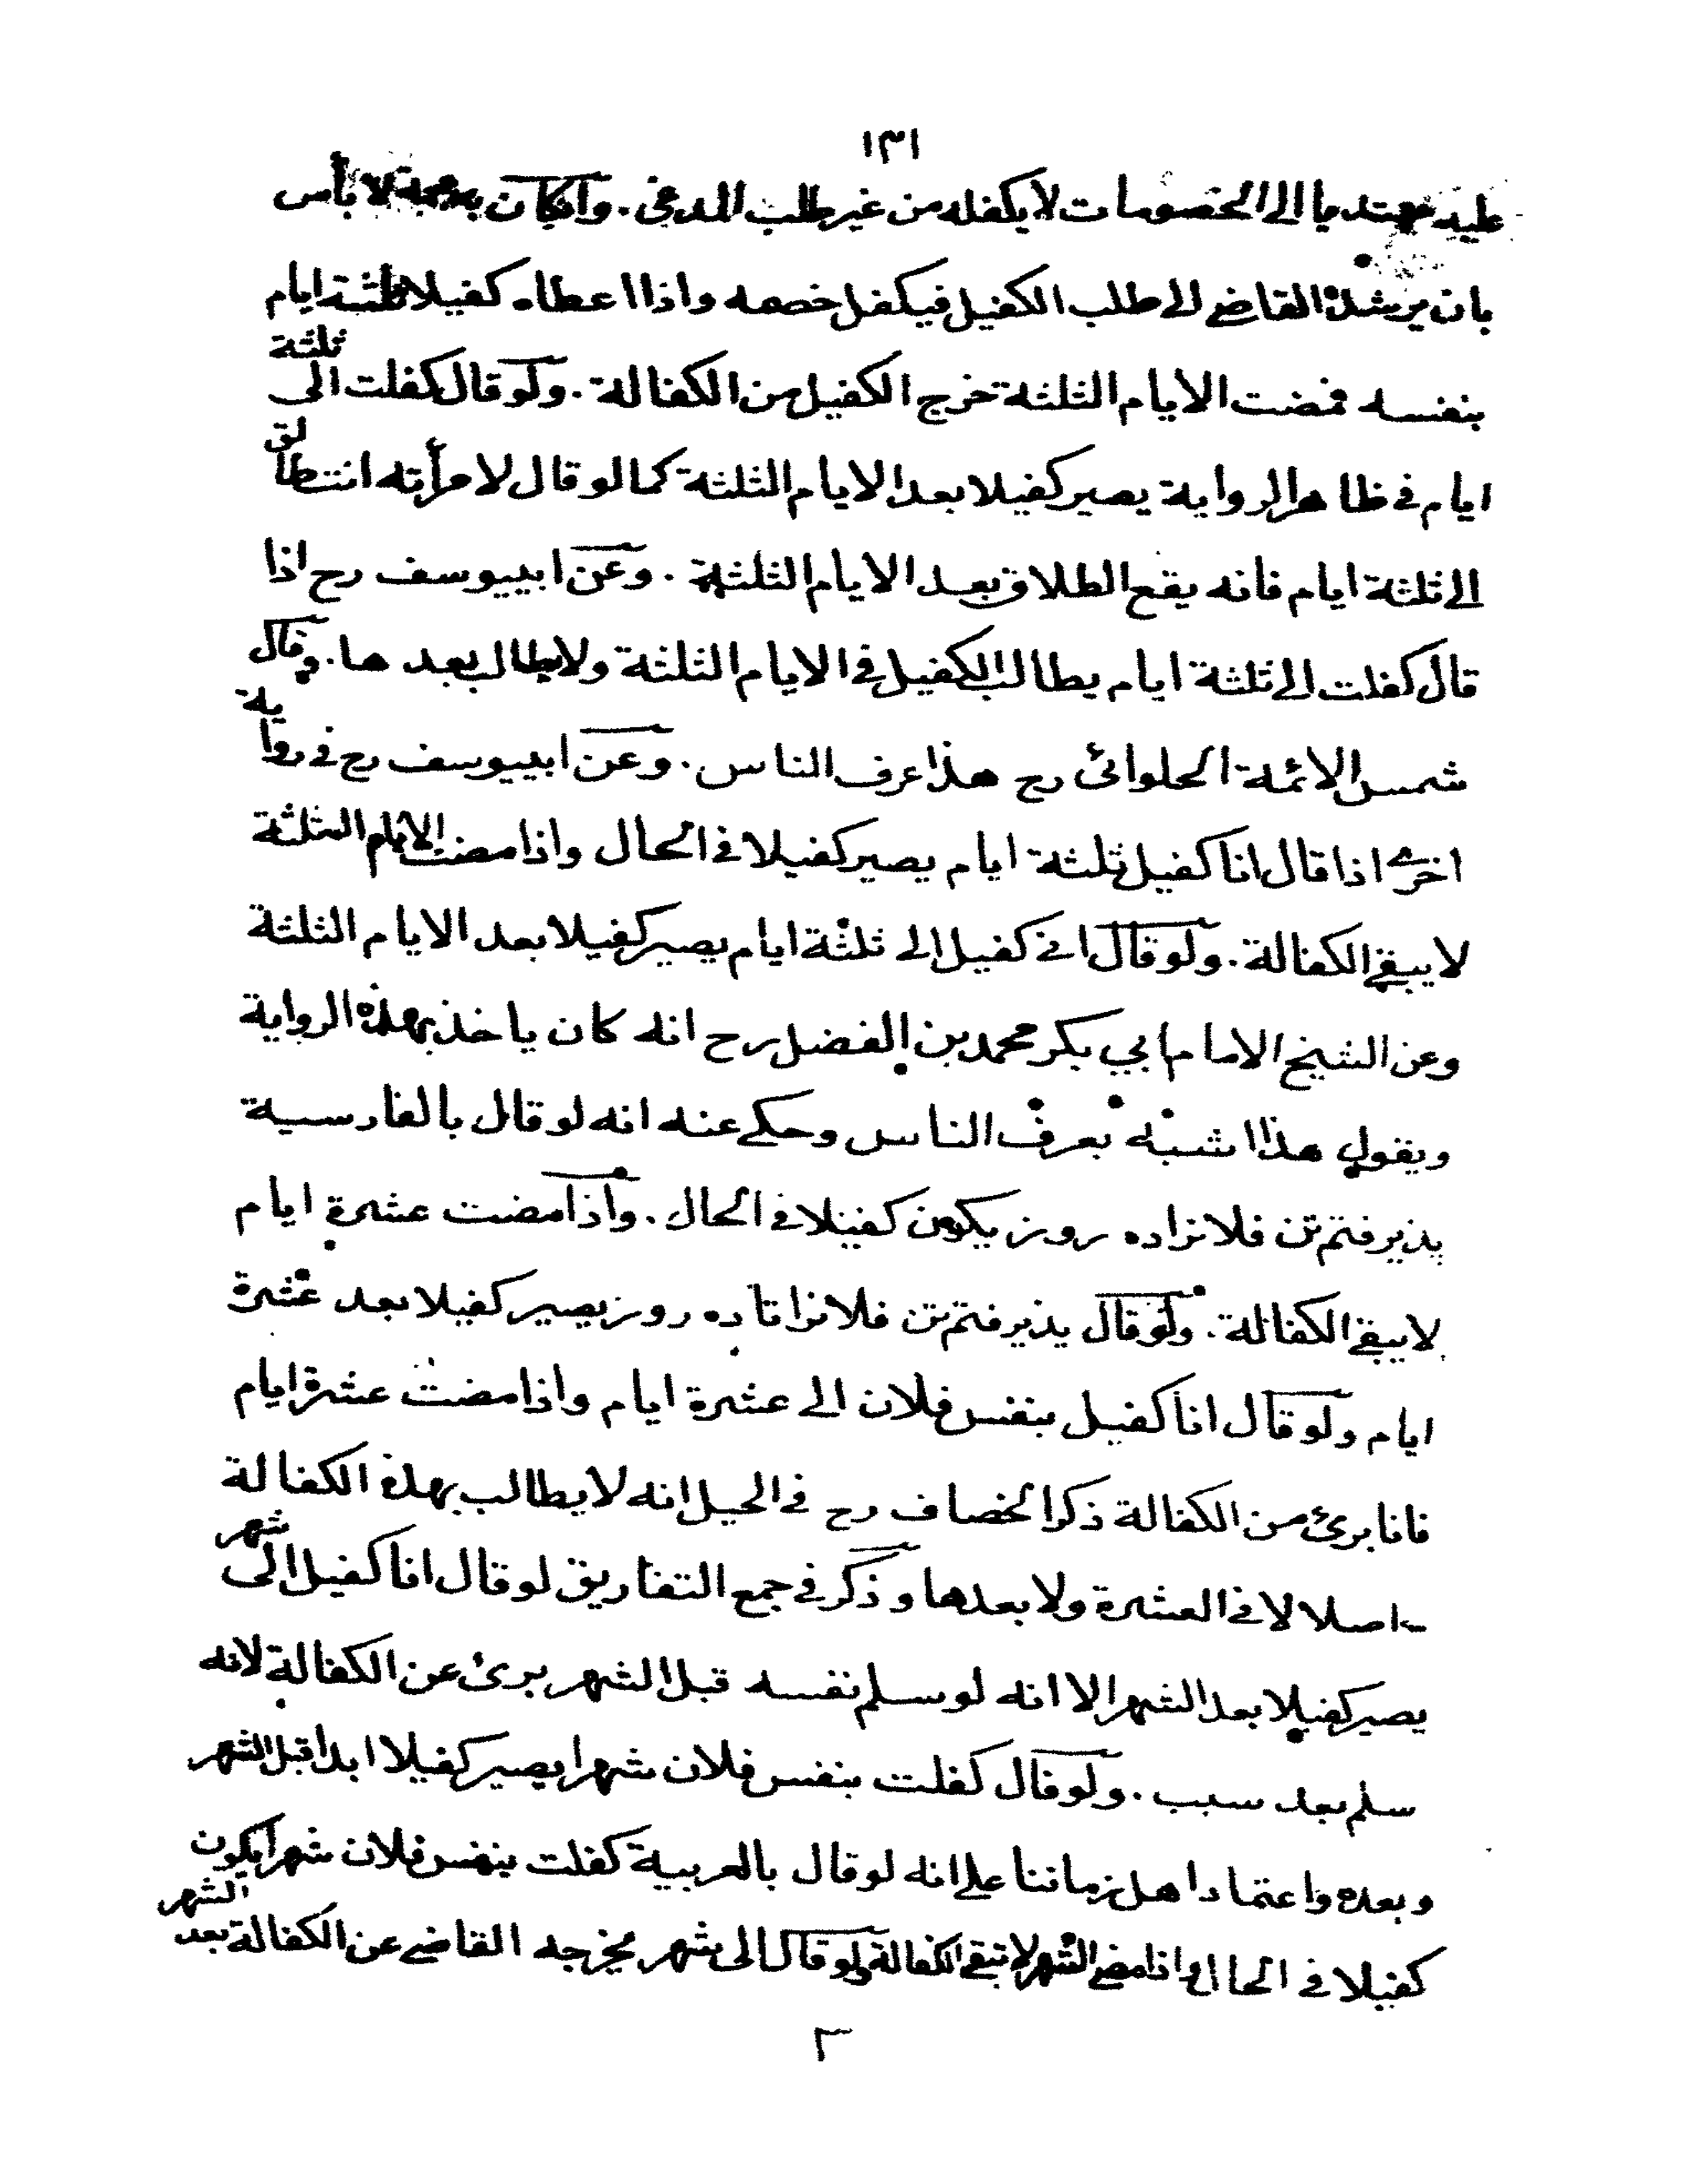 ١٣١
عليه مهتديا الى الخصومات لا يكفله من غير طلب المدعي . وان كان به لا بأس
بان يرشده القاضي الى طلب الكفيل فيكفل خصمه واذا اعطاه كفيلا ثلثة ايام
بنفسه فمضت الايام الثلثة خرج الكفيل من الكفالة . ولو قال كفلت الى ثلثة
ايام في ظاهر الرواية يصير كفيلا بعد الايام الثلثة كما لو قال لامرأته انت طالق
الى ثلثة ايام فانه يقع الطلاق بعد الايام الثلثة . وعن ابييوسف رح اذا
قال كفلت الى ثلثة ايام يطالب الكفيل في الايام الثلثة ولا يطالب بعد ها . وقال
شمس الائمة الحلوائى رح هذا عرف الناس . وعن ابييوسف رح في رواية
اخرى اذا قال انا كفيل ثلثة ايام يصير كفيلا في الحال واذا مضت الايام الثلثة
لا يبقى الكفالة . ولو قال اني كفيل الى ثلثة ايام يصير كفيلا بعد الايام الثلثة
وعن الشيخ الامام ابي بكر محمد بن الفضل رح انه كان ياخذ بهذه الرواية
ويقول هذا اشبه بعرف الناس وحكى عنه انه لو قال بالفارسية
پذيرفتم تن فلانرا ده روز يكون كفيلا في الحال . واذا مضت عشرة ايام
لا يبقى الكفالة . ولو قال پذيرفتم تن فلانرا تا ده روز يصير كفيلا بعد عشرة
ايام ولو قال انا كفيل بنفس فلان الى عشرة ايام واذا مضت عشرة ايام
فانا برئ من الكفالة ذكر الخصاف رح في الحيل انه لا يطالب بهذه الكفالة
اصلا لا في العشرة ولا بعدها وذكر في جمع التفاريق لو قال انا كفيل الى شهر
يصير كفيلا بعد الشهر الا انه لو سلم نفسه قبل الشهر برئ عن الكفالة لانه
سلم بعد سبب . ولو قال كفلت بنفس فلان شهرا يصير كفيلا ابدا قبل الشهر
وبعده واعتماد اهل زماننا على انه لو قال بالعربية كفلت بنفس فلان شهرا يكون
كفيلا في الحال واذا مضى الشهر لا تبقى الكفالة ولو قال الى شهر يخرجه القاضي عن الكفالة بعد الشهر